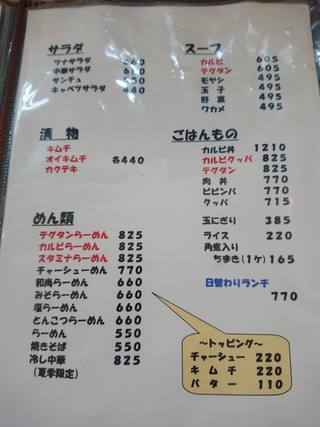 サラダ
ツナサラダ 660
中華サラダ
サンチュ
キャベツサラダ 440
漬 物
キムチ
オイキムチ 各440
カクテキ
めん類
テグタンらーめん 825
カルビらーめん 825
スタミナらーめん 825
チャーシューめん 770
和尚らーめん 660
みそらーめん 660
塩らーめん 660
とんこつらーめん 660
らーめん 550
焼きそば 550
冷し中華 825
(夏季限定)
スープ
カルビ 605
テグタン 605
モヤシ 495
玉 子 495
野 菜 495
ワカメ 495
ごはんもの
カルビ丼 1210
カルビクッパ 825
テグタン 825
肉 丼 770
ビビンバ 770
クッパ 715
玉にぎり 385
ライス 220
角煮入り
ちまき(1ケ)165
日替わりランチ
770
～トッピング～
チャーシュー 220
キ ム チ 220
バ タ ー 110